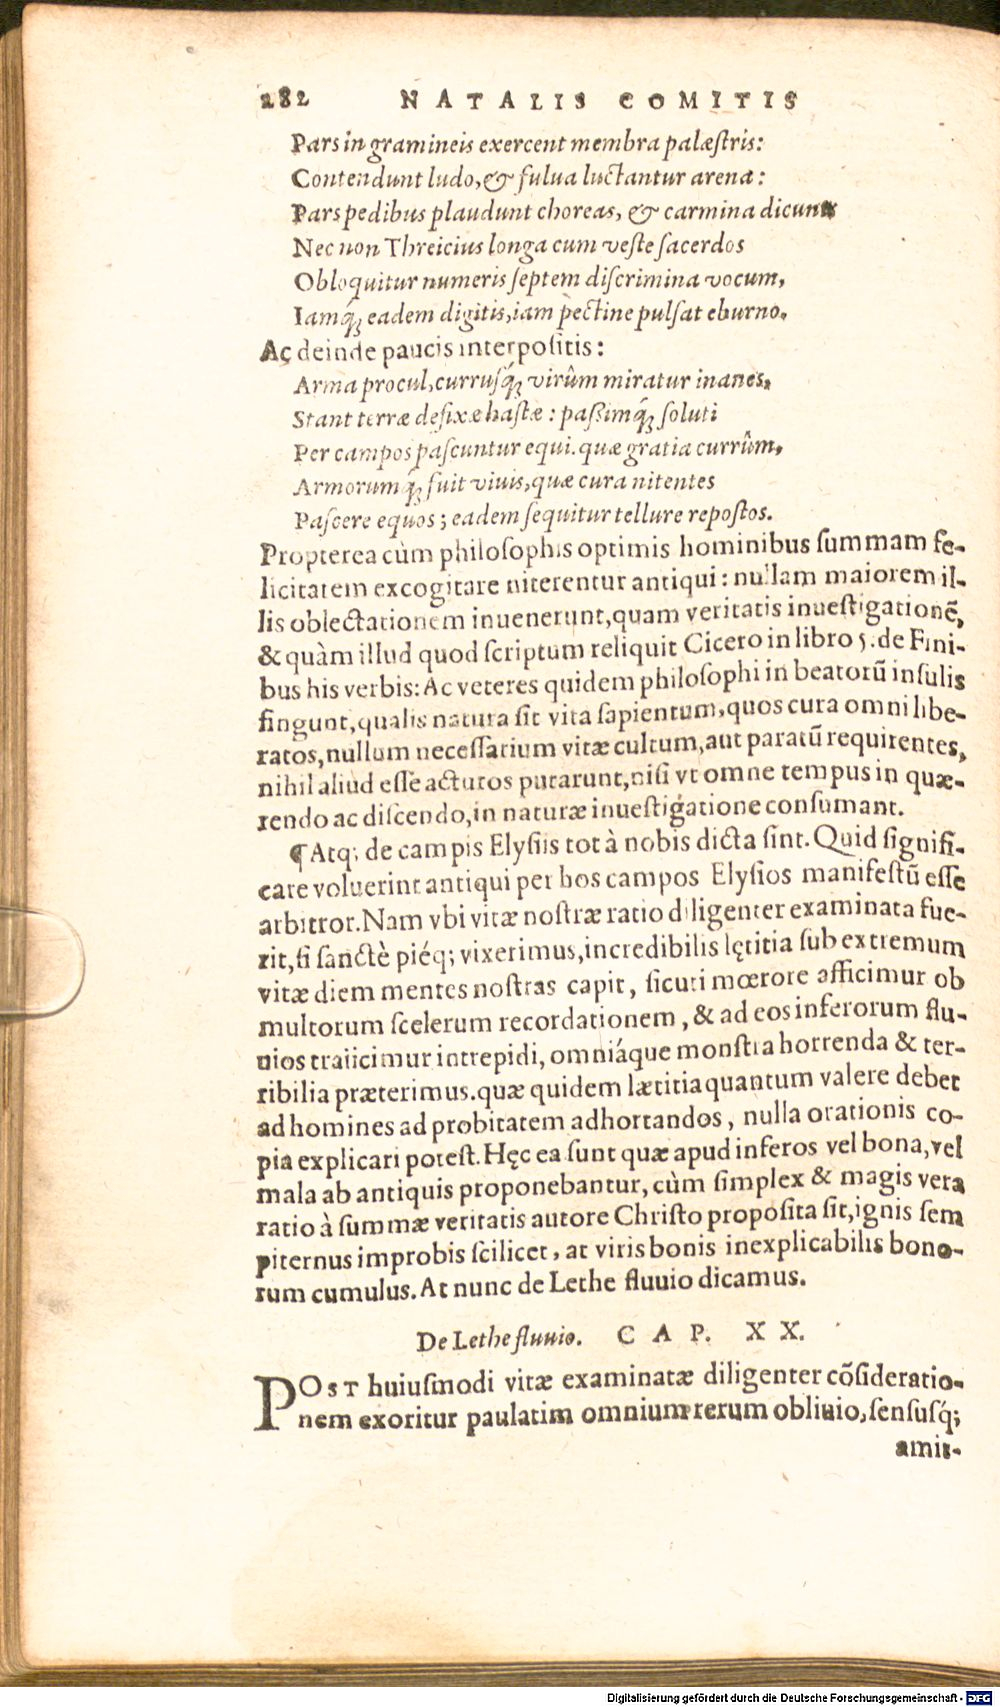 282 NATALIS COMITIS
Pars in gramineis exercent membra palæſtris:
Contendunt ludo, & fulua luctantur arena:
Pars pedibus plaudunt choreas, & carmina dicunt
Nec non Threicius longa cum veſte ſacerdos
Obloquitur numeris ſeptem diſcrimina vocum,
Iamq́; eadem digitis, iam pectine pulſat eburno.
Ac deinde paucis interpoſitis:
Arma procul, curruſq́; virûm miratur inanes,
Stant terræ defixæ haſtæ: paßimq́; ſoluti
Per campos paſcuntur equi. quæ gratia currûm,
Armorumq́; fuit viuis, quæ cura nitentes
Paſcere equos; eadem ſequitur tellure repoſtos.
Propterea cùm philoſophis optimis hominibus ſummam fe-
licitatem excogitare niterentur antiqui: nullam maiorem il-
lis oblectationem inuenerunt, quam veritatis inueſtigationẽ,
& quàm illud quod ſcriptum reliquit Cicero in libro 5. de Fini-
bus his verbis: Ac veteres quidem philoſophi in beatorũ inſulis
fingunt, qualis natura ſit vita ſapientum, quos cura omni libe-
ratos, nullum neceſſarium vitæ cultum, aut paratũ requirentes,
nihil aliud eſſe acturos putarunt, niſi vt omne tempus in quæ-
rendo ac diſcendo, in naturæ inueſtigatione conſumant.
¶ Atq; de campis Elyſiis tot à nobis dicta ſint. Quid ſignifi-
care voluerint antiqui per hos campos Elyſios manifeſtũ eſſe
arbitror. Nam vbi vitæ noſtræ ratio diligenter examinata fue-
rit, ſi ſanctè piéq; vixerimus, incredibilis lętitia ſub extremum
vitæ diem mentes noſtras capit, ſicuti mœrore afficimur ob
multorum ſcelerum recordationem, & ad eos inferorum flu-
uios traiicimur intrepidi, omniáque monſtra horrenda & ter-
ribilia præterimus. quæ quidem lætitia quantum valere debet
ad homines ad probitatem adhortandos, nulla orationis co-
pia explicari poteſt. Hęc ea ſunt quæ apud inferos vel bona, vel
mala ab antiquis proponebantur, cùm ſimplex & magis vera
ratio à ſummæ veritatis autore Chriſto propoſita ſit, ignis ſem
piternus improbis ſcilicet, at viris bonis inexplicabilis bono-
rum cumulus. At nunc de Lethe fluuio dicamus.
De Lethe fluuio. CAP. XX.
POST huiuſmodi vitæ examinatæ diligenter cõſideratio-
nem exoritur paulatim omnium rerum obliuio, ſenſuſq́;
amiſ-
Digitalisierung gefördert durch die Deutsche Forschungsgemeinschaft - DFG